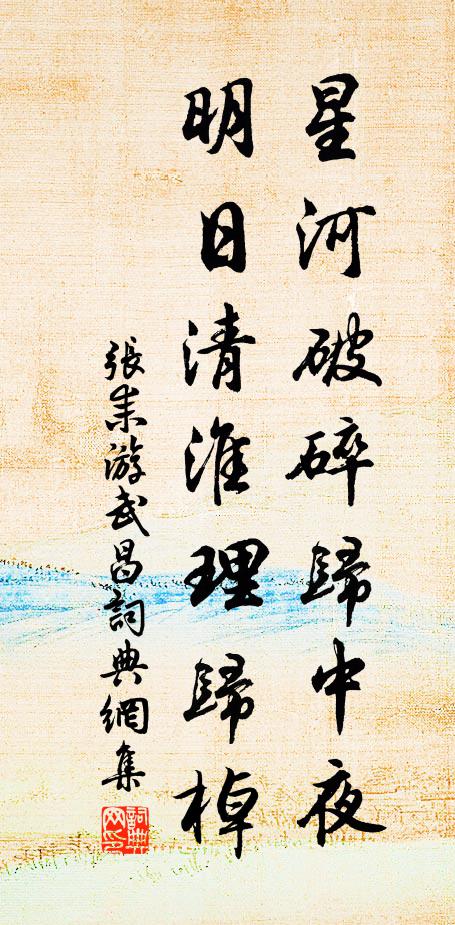 星河破碎歸中夜
明日清淮理歸棹
張耒游武昌詞典網集
詞典网印